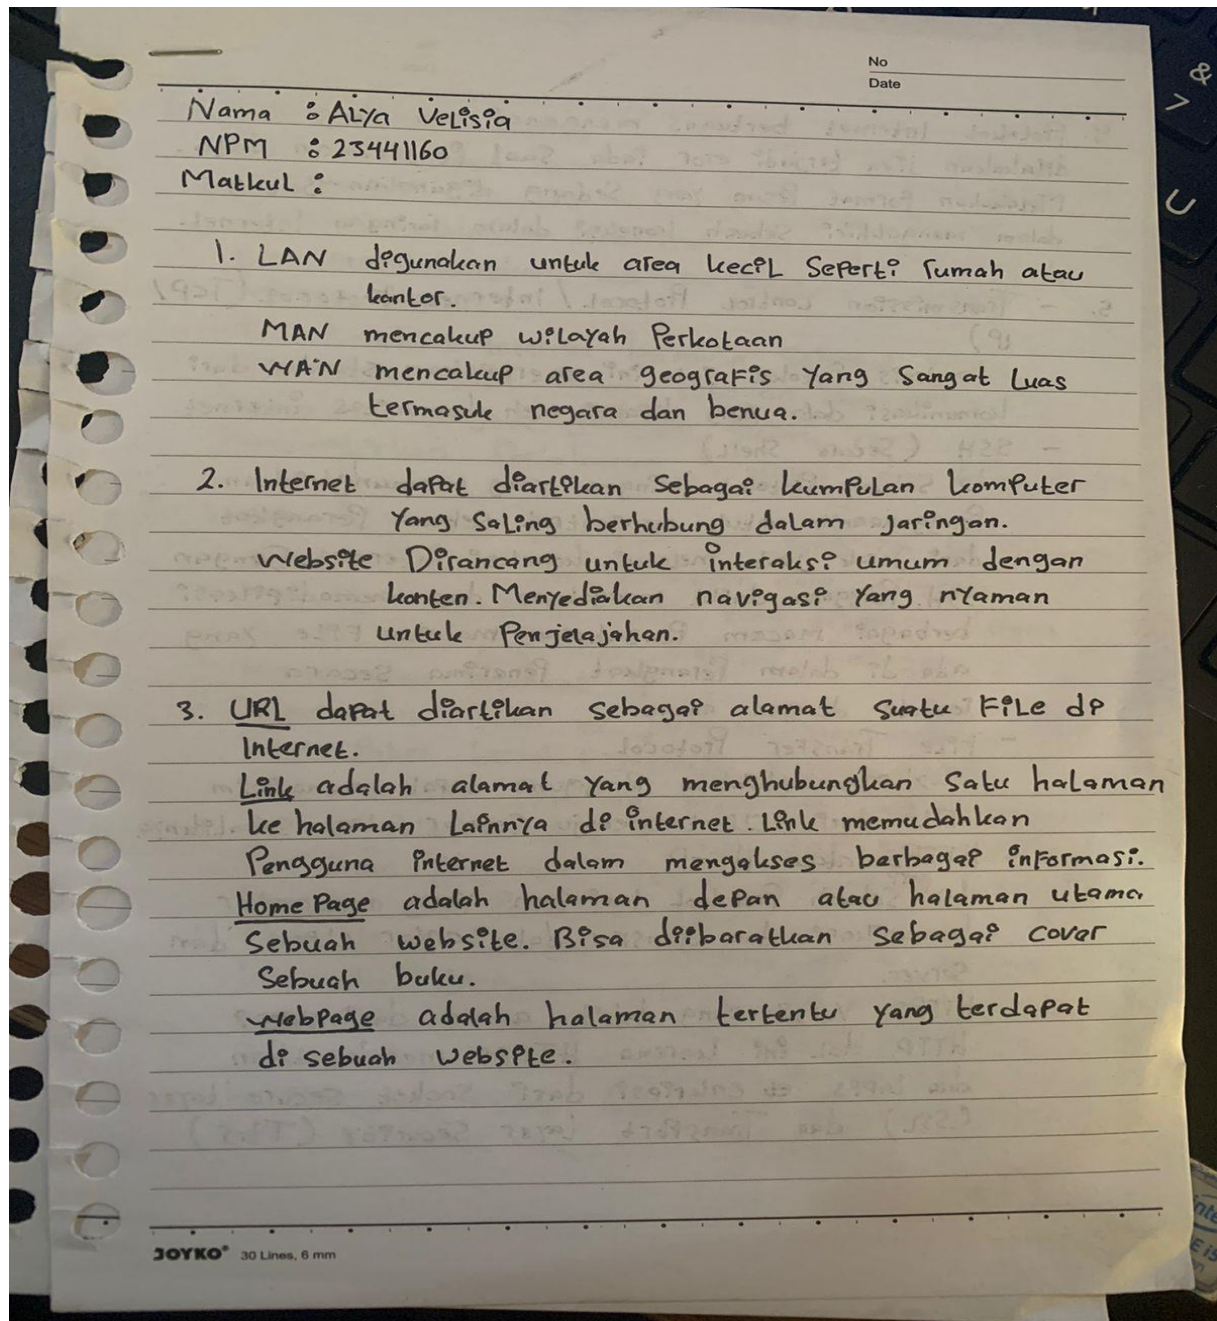 No
Date
Nama : Alya Velisia
NPM : 23441160
Matkul :
1. LAN digunakan untuk area kecil seperti rumah atau
kantor.
MAN mencakup wilayah Perkotaan
WAN mencakup area geografis yang sangat luas
termasuk negara dan benua.
2. Internet dapat diartikan sebagai kumpulan komputer
yang saling berhubung dalam jaringan.
Website Dirancang untuk interaksi umum dengan
konten. Menyediakan navigasi yang nyaman
untuk Penjelajahan.
3. URL dapat diartikan sebagai alamat suatu File di
Internet.
Link adalah alamat yang menghubungkan satu halaman
ke halaman lainnya di internet. Link memudahkan
Pengguna internet dalam mengakses berbagai informasi.
Home Page adalah halaman depan atau halaman utama
Sebuah website. Bisa diibaratkan sebagai cover
Sebuah buku.
Webpage adalah halaman tertentu yang terdapat
di sebuah website.
JOYKO 30 Lines, 6 mm